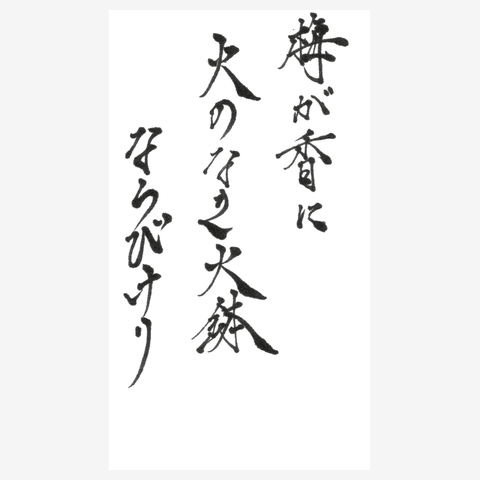 梅が香に
火のなき火鉢
ならびけり